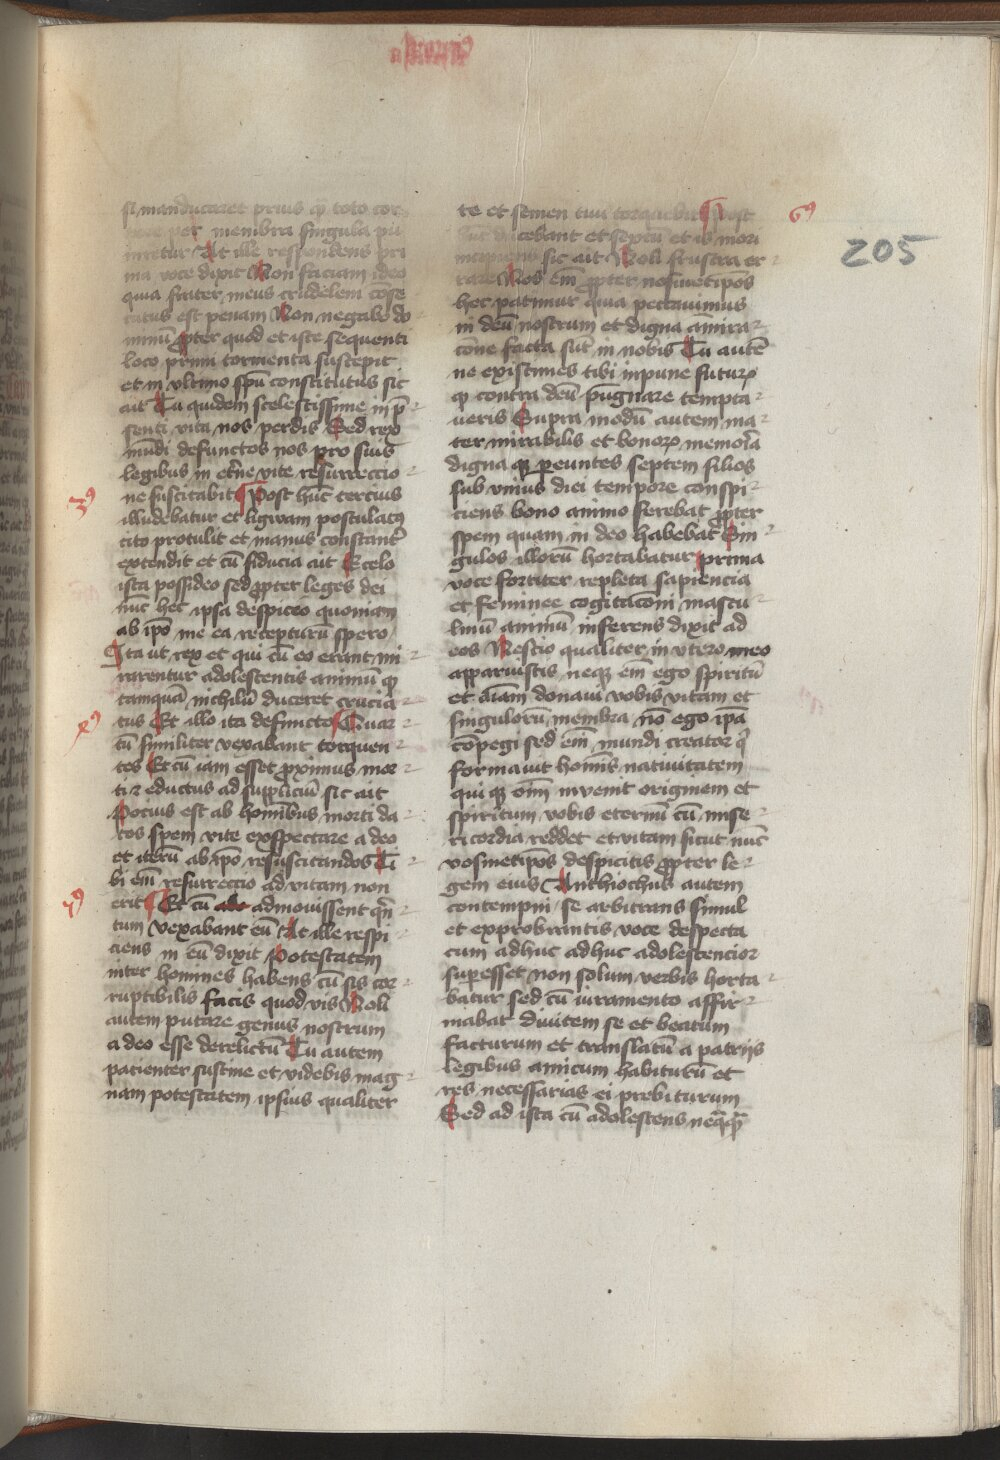 205
si manducaret prius q̄ toto cor
pore per membra singula pu
niretur At ille respondens pri
ma voce dixit Non faciam ideo
quia frater meus crudelem cōse
cutus est penam Non negabo do
minū ꝓpter quod et iste sequenti
loco primi tormenta suscepit
et in vltimo spū constitutus sic
ait Tu quidem scelestissime in p̄
senti vita nos perdis Sed rex
mūdi defunctos nos pro suis
legibus in et̄ne vite resurreccio
ne suscitabit Post hūc tercius
illudebatur et ligwam postulatꝰ
cito protulit et manus constant̄
extendit et cū fiducia ait E celo
ista possideo sed ꝓpter leges dei
nūc hec ipsa despicio quoniam
ab ipō me ea recepturū spero
Ita ut rex et qui cū eo erant mi
rarentur adolescentis animū q̄
tamquā nichilū duceret crucia
tus Et illo ita defuncto Quar
tū similiter vexabant torquen
tes Et cū iam esset ꝓximus mor
ti z eductus ad suppliciū sic ait
Pocius est ab hominibus morti da
tos spem vite exspectare a deo
et iterū ab ipō resuscitandos Ti
bi em̄ resurreccio ad vitam non
erit Et cū admouissent qn̄
tum vexabant eū At ille respi
ciens in eū dixit Potestatem
inter homines habens cū sis cor
ruptibilis facis quod vis Noli
autem putare genus nostrum
a deo esse derelictū Tu autem
patienter sustine et videbis mag
nam potestatem ipsius qualiter
te et semen tuū torquebit Post
hūc ducebant et sextū et is mori
incipiens sic ait Noli frustra er
rare Nos em̄ ꝓpter nosmetipōs
hec patimur quia peccauimus
in deū nostrum et digna āmira
cōne facta sūt in nobis Tu autē
ne existimes tibi inpune futurꝝ
q̄ contra deū pugnare tempta
ueris Supra modū autem ma
ter mirabilis et bonorꝝ memoīa
digna que pereuntes septem filios
sub vnius diei tempore conspi
ciens bono animo ferebat ꝓpter
spem quam in deo habebat Sin
gulos illorū hortabatur prima
voce fortiter repleta sapiencia
et feminee cogitacōni mascu
linū animū inferens dixit ad
eos Nescio qualiter in vtero meo
apparuistis neque em̄ ego spiritū
et aīam donaui vobis vitam et
singulorū membra nō ego ipā
cōpegi sed em̄ mundi creator q̄
formauit homīs natiuitatem
qui que oīm inuenit originem et
spiritum vobis eternū cū mise
ricordia reddet et vitam sicut nūc
vosmetipōs despicitis ꝓpter le
gem eius Anthiochus autem
contempni se arbitrans simul
et exprobrantis voce despecta
cum adhuc adhuc adolescencior
superesset non solum verbis horta
batur sed cū iuramento affir
mabat diuitem se et beatum
facturum et translatū a patrijs
legibus amicum habiturū et
res necessarias ei prebiturum
Sed ad ista cū adolescens neq̄q̄